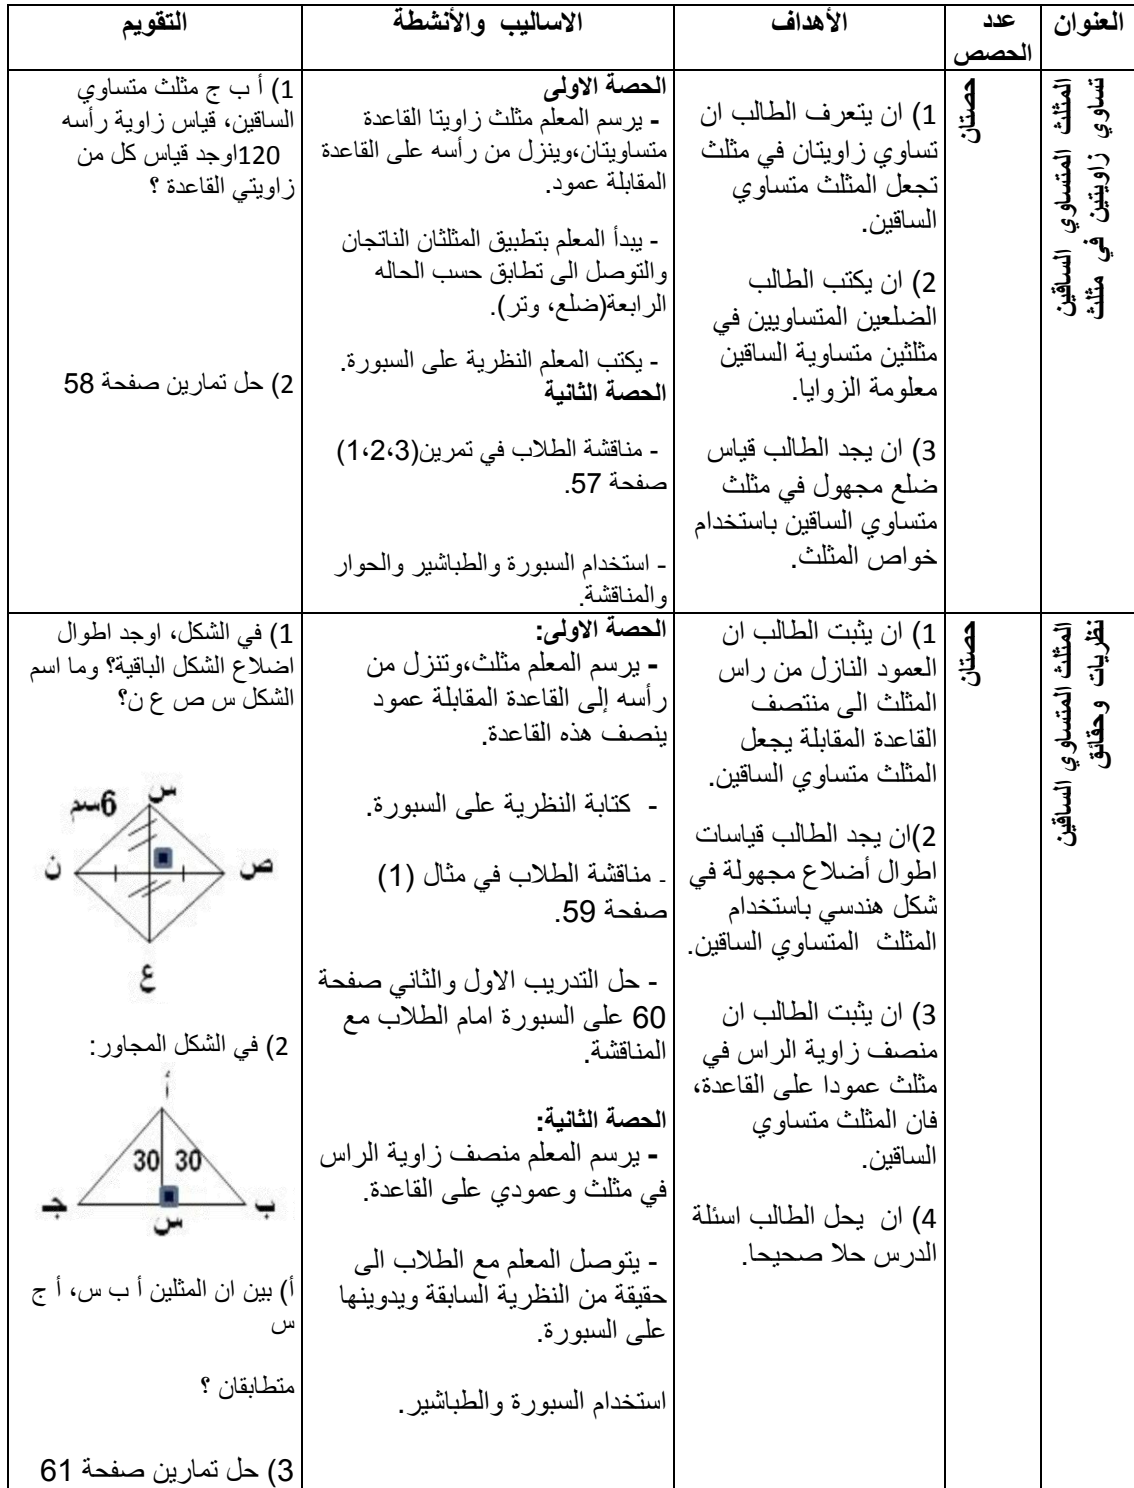 العنوان
عدد
الحصص
الأهداف
الاساليب والأنشطة
التقويم
المثلث المتساوي الساقين
تساوي زاويتين في مثلث
حصتان
1) ان يتعرف الطالب ان
تساوي زاويتان في مثلث
تجعل المثلث متساوي
الساقين.
2) ان يكتب الطالب
الضلعين المتساويين في
مثلثين متساوية الساقين
معلومة الزوايا.
3) ان يجد الطالب قياس
ضلع مجهول في مثلث
متساوي الساقين باستخدام
خواص المثلث.
الحصة الاولى
- يرسم المعلم مثلث زاويتا القاعدة
متساويتان،وينزل من رأسه على القاعدة
المقابلة عمود.
- يبدأ المعلم بتطبيق المثلثان الناتجان
والتوصل الى تطابق حسب الحاله
الرابعة(ضلع، وتر).
- يكتب المعلم النظرية على السبورة.
الحصة الثانية
- مناقشة الطلاب في تمرين(1،2،3)
صفحة 57.
- استخدام السبورة والطباشير والحوار
والمناقشة.
1) أ ب ج مثلث متساوي
الساقين، قياس زاوية رأسه
120اوجد قياس كل من
زاويتي القاعدة ؟
2) حل تمارين صفحة 58
المثلث المتساوي الساقين
نظريات وحقائق
حصتان
1) ان يثبت الطالب ان
العمود النازل من راس
المثلث الى منتصف
القاعدة المقابلة يجعل
المثلث متساوي الساقين.
2)ان يجد الطالب قياسات
اطوال أضلاع مجهولة في
شكل هندسي باستخدام
المثلث المتساوي الساقين.
3) ان يثبت الطالب ان
منصف زاوية الراس في
مثلث عمودا على القاعدة،
فان المثلث متساوي
الساقين.
4) ان يحل الطالب اسئلة
الدرس حلا صحيحا.
الحصة الاولى:
- يرسم المعلم مثلث،وتنزل من
رأسه إلى القاعدة المقابلة عمود
ينصف هذه القاعدة.
- كتابة النظرية على السبورة.
- مناقشة الطلاب في مثال (1)
صفحة 59.
- حل التدريب الاول والثاني صفحة
60 على السبورة امام الطلاب مع
المناقشة.
الحصة الثانية:
- يرسم المعلم منصف زاوية الراس
في مثلث وعمودي على القاعدة.
- يتوصل المعلم مع الطلاب الى
حقيقة من النظرية السابقة ويدوينها
على السبورة.
استخدام السبورة والطباشير.
1) في الشكل، اوجد اطوال
اضلاع الشكل الباقية؟ وما اسم
الشكل س ص ع ن؟
س
6سم
ص
ن
ع
2) في الشكل المجاور:
أ
30 30
ب
س
جـ
أ) بين ان المثلين أ ب س، أ ج
س
متطابقان ؟
3) حل تمارين صفحة 61